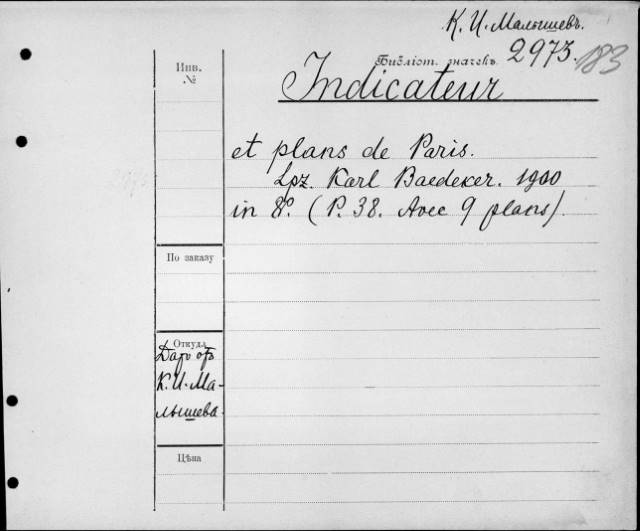 К. И. Малышевъ.
Библіот. значекъ. 2973. 183
Инв.
№
Indicateur
et plans de Paris.
Lpz. Karl Baedeker. 1900
in 8º. (P. 38. Avec 9 plans).
По заказу
Откуда
Даръ отъ
К. И. Ма-
лышева.
Цѣна